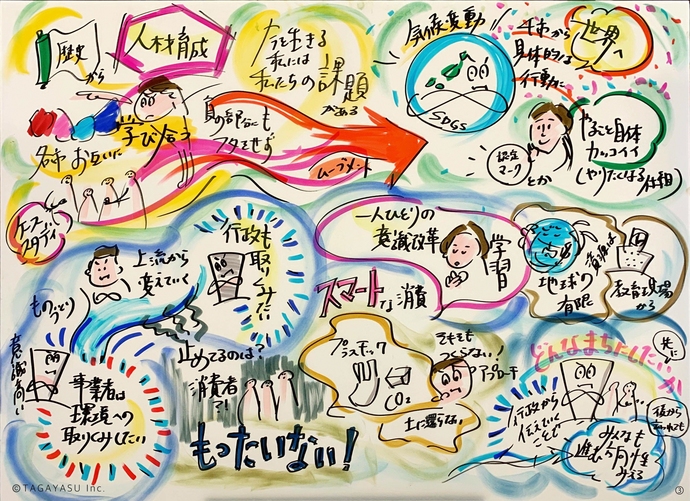 歴史
から
人材育成
今を生きる
私には
私たちの課題
がある
気候変動
SDGs
具体的な
行動に
世界へ
学び合う
各市お互いに
負の部分にも
フタをせず
ムーブメント
認定
マーク
とか
やること自体
カッコイイ
(やりたくなる仕組)
ケース
スタディ
上流から
変えていく
行政も
取りくみだ
一人ひとりの
意識改革
学習
地球の
資源は
有限
教育現場
から
スマートな消費
ものづくり
意識高い
事業者は
環境への
取りくみしたい
止めてるのは?
消費者
?!
もったいない!
プラスチック
CO2
そもそも
つくらない!
アプローチ
土に還らない
どんなまちにしたいか
共に
行政から
伝えていく
ことで
みんなも
進む方向性
みえる
©TAGAYASU Inc.
③